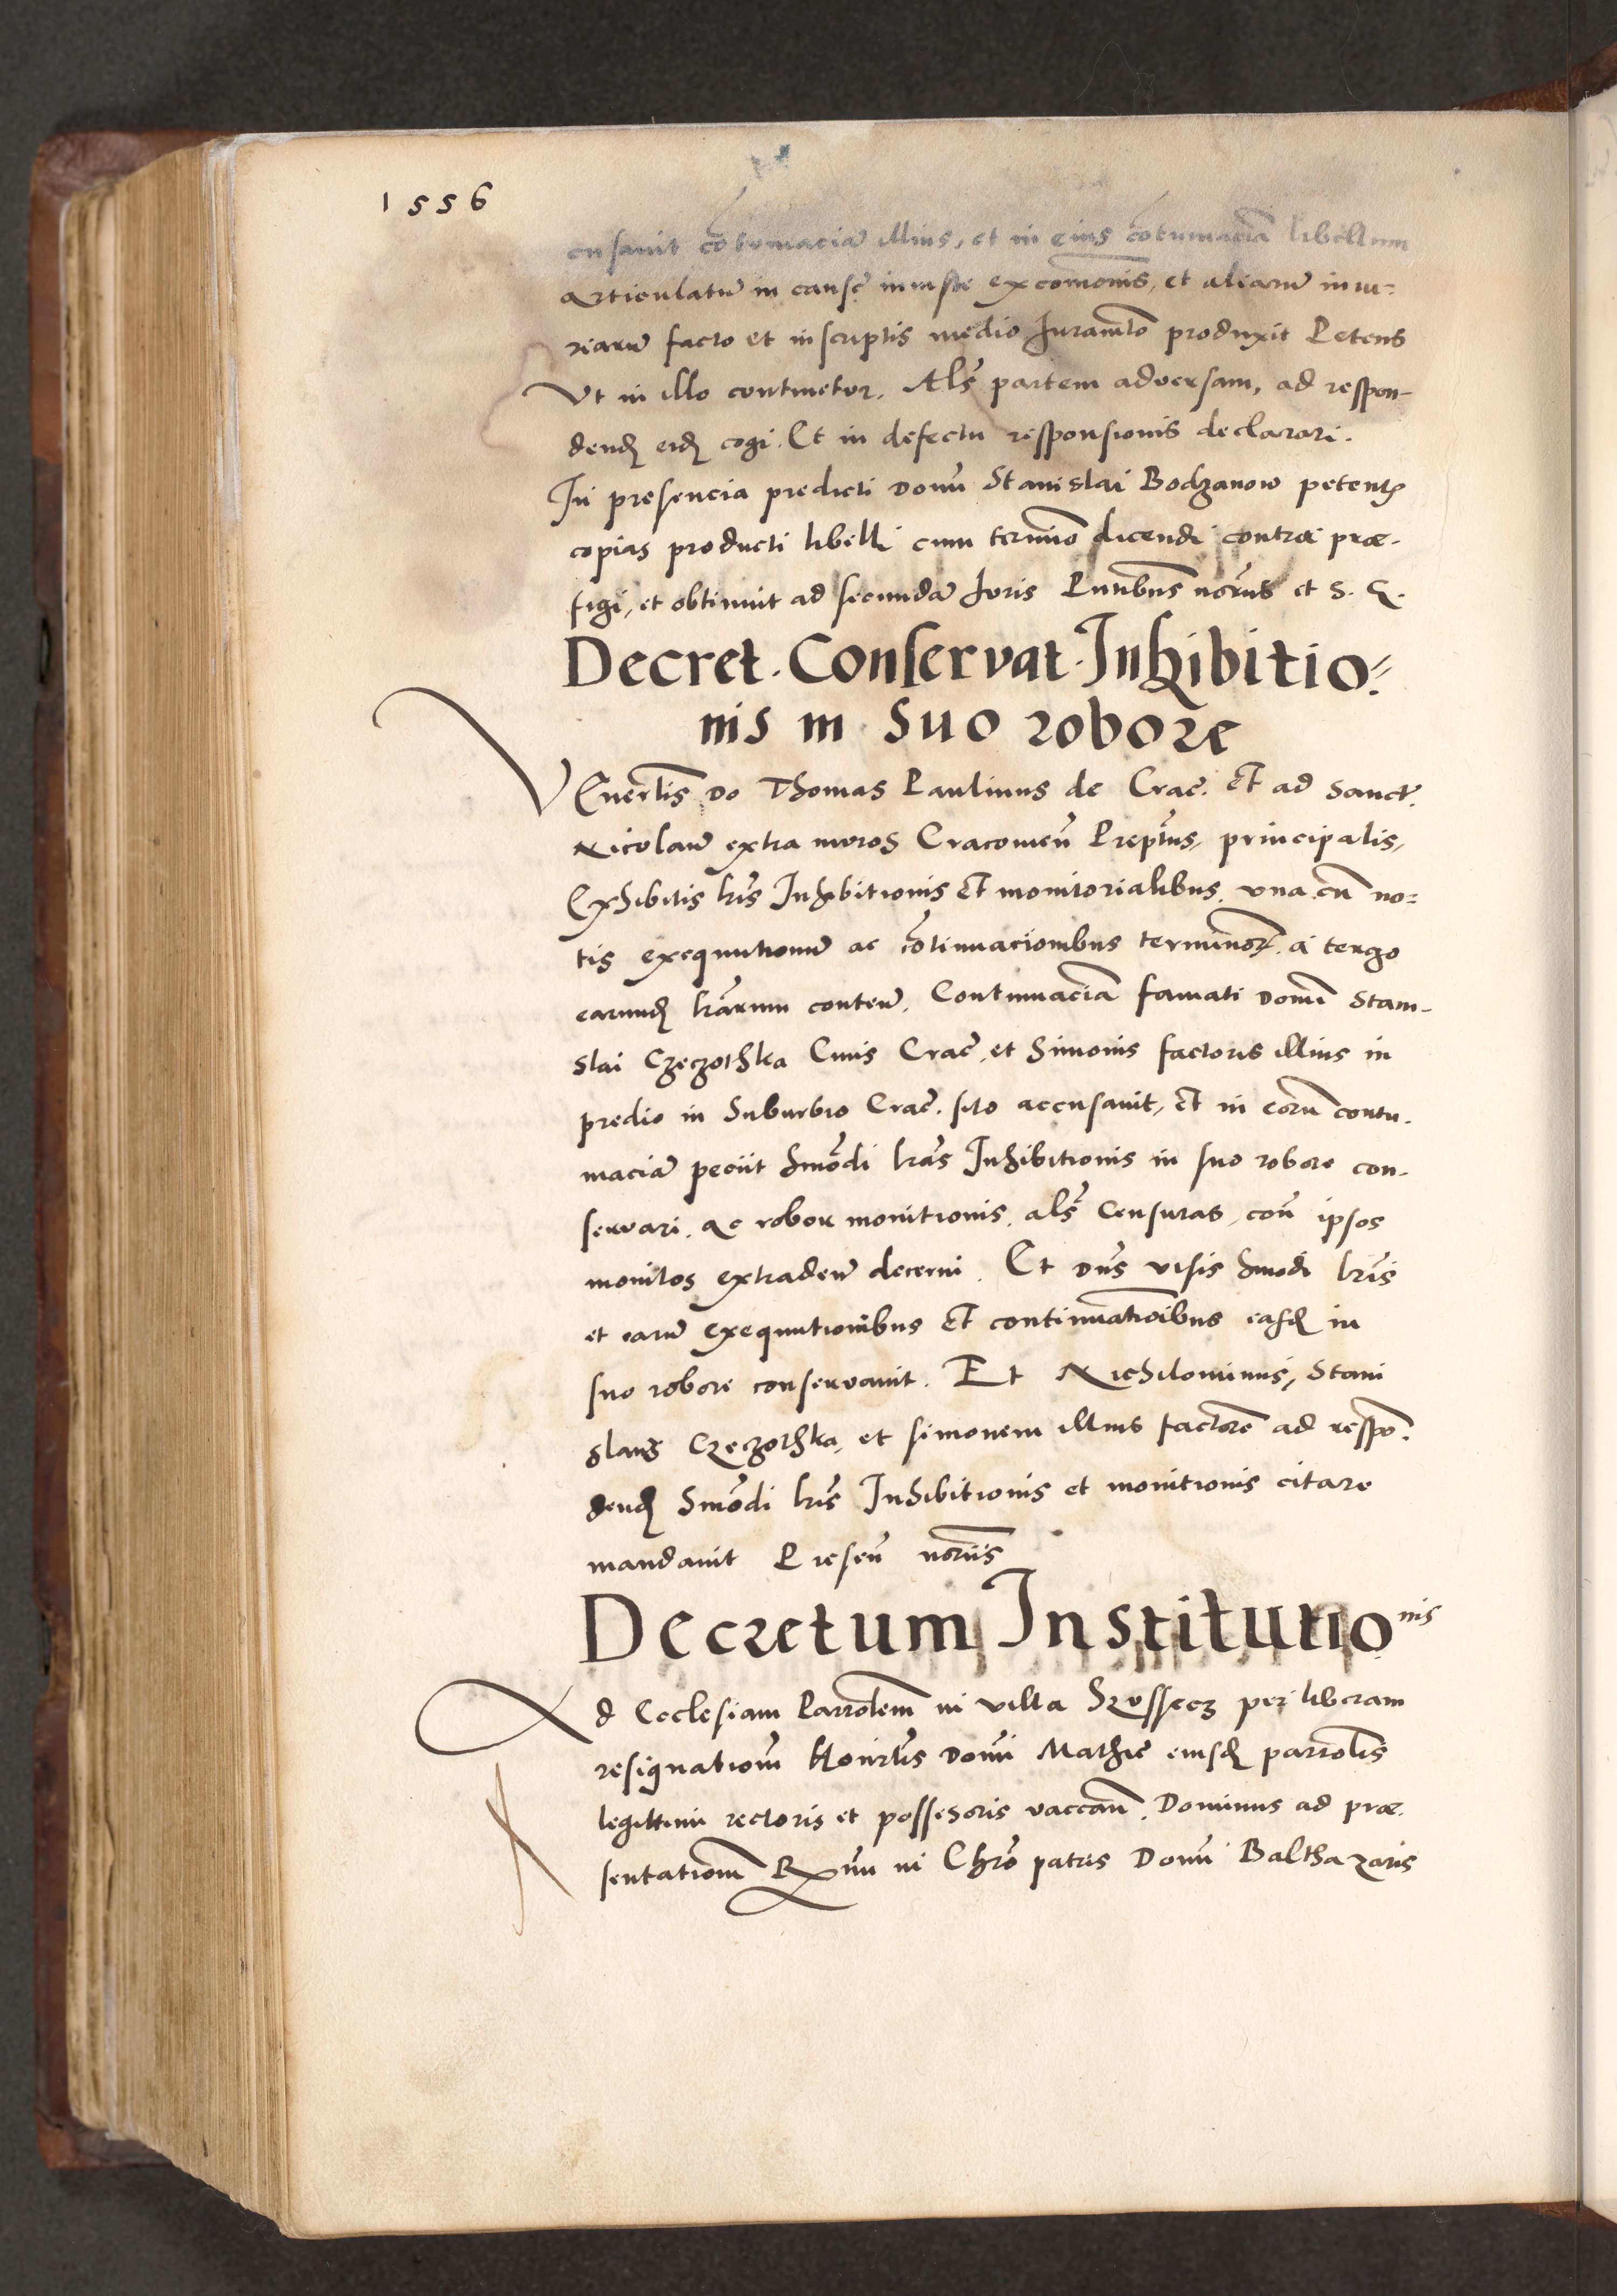 1556
cusavit cõtumaciã illius, et in eius cõtumaciã libellum
articulatũ in causẽ iniuste excomonis, et aliarũ iniu=
riarũ facto et in scriptis medio Iuramẽto produxit Petens
Vt in illo continetur. Als partem adversam, ad respon-
dend eid cogi. Et in defectu responsionis declarari.
In presencia predicti Domi Stanislai Bodzanow petentis
copias producti libelli cum termino dicendi contra præ-
figi, et obtinuit ad secundã Iuris Pntibus notarijs et S. Q.
Decret. Conservat. Inhibitio=
nis in suo robore
VEnerlis Do Thomas Paulinus de Crac. et ad Sanct.
Nicolaũ extra muros Cracovieñ Prepttus, principalis,
Exhibitis lris Inhibitionis et monitorialibus, una cũ no=
tis exequutionũ ac cõtinuacionibus terminor. a tergo
earund lrarum conteñ. Contumaciã famati Domi Stani-
slai Czeczothka Civis Crac. et Simonis factoris illius in
predio in Suburbio Crac. sito accusavit, et in eorũ contu-
maciã peciit hmõdi lras Inhibitionis in suo robore con-
servari. ac robur monitionis, als Censuras, coñ ipsos
monitos extradeñ decerni. Et Dns visis hmodi lris
et earũ exequutionibus et continuatioibus easd in
suo robore conservavit. Et Nichilominus, Stani
slaus Czeczothka, et simonem illius factorẽ ad respõ-
dend hmõdi lris Inhibitionis et monitionis citare
mandavit Preseñ notrijs
Decretum Institutionis
Ad Ecclesiam Parrolem in villa per liberam
resignationem Honirlis Domi Mathie eiusd parrolis
legittimi rectoris et possesoris vaccañ. Dominus ad præ-
sentationem Rmi in Chro patris Domi Balthazaris